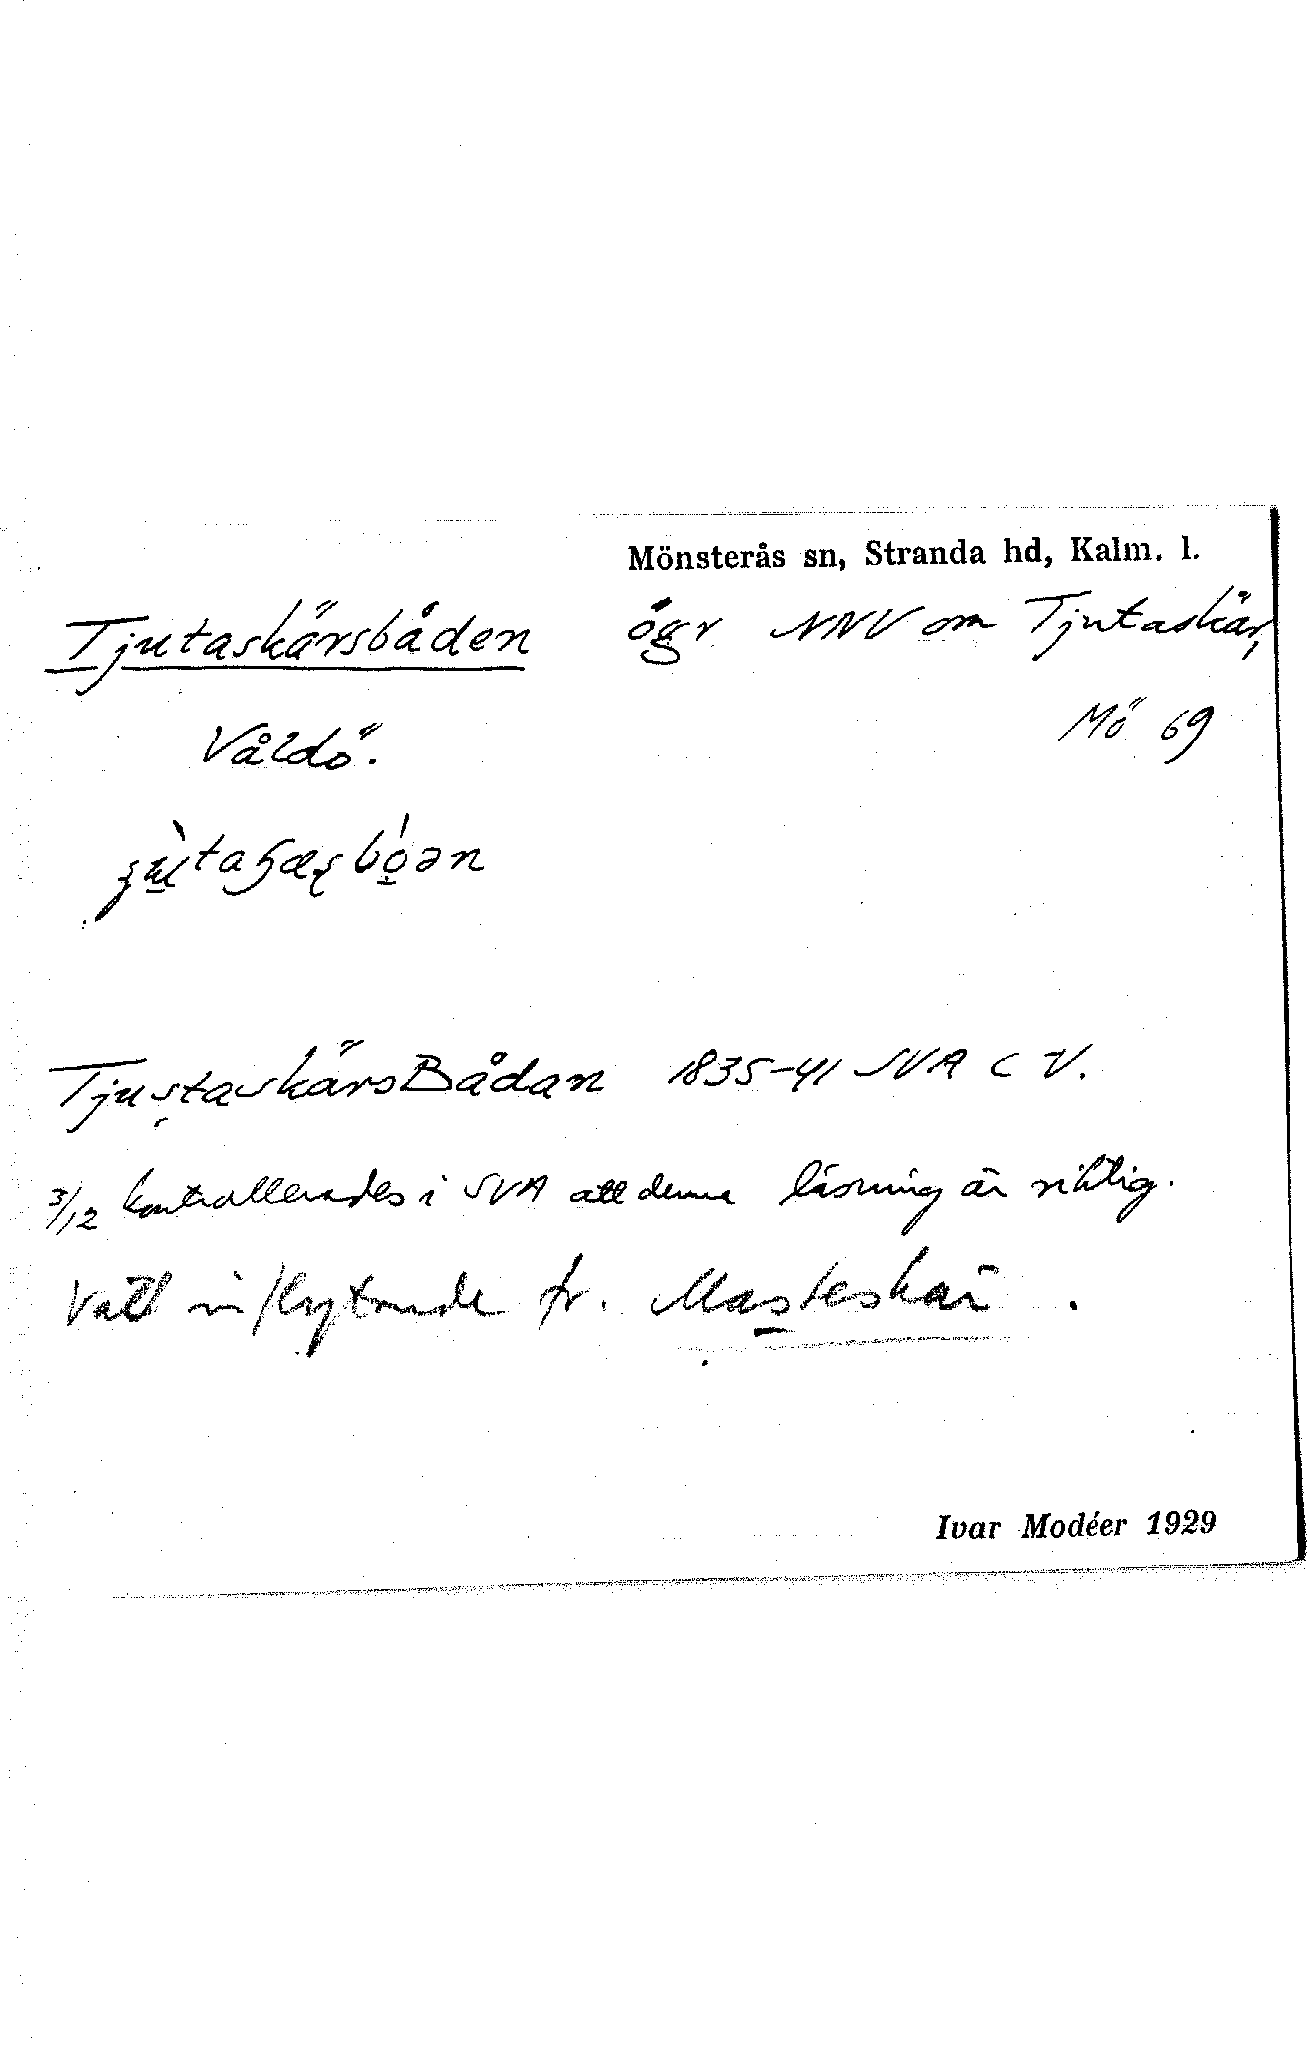 Mönsterås sn, Stranda hd, Kalm. l.
Tjutaskärsbåden ögr NNV om Tjutaskär,
Våldö. Mö 69
TjustaskärsBådan 1835-41 SVA C V.
3/12 kontrollerades i SVA att denna läsning är riktig.
Väl fr. Masteskär.
Ivar Modéer 1929